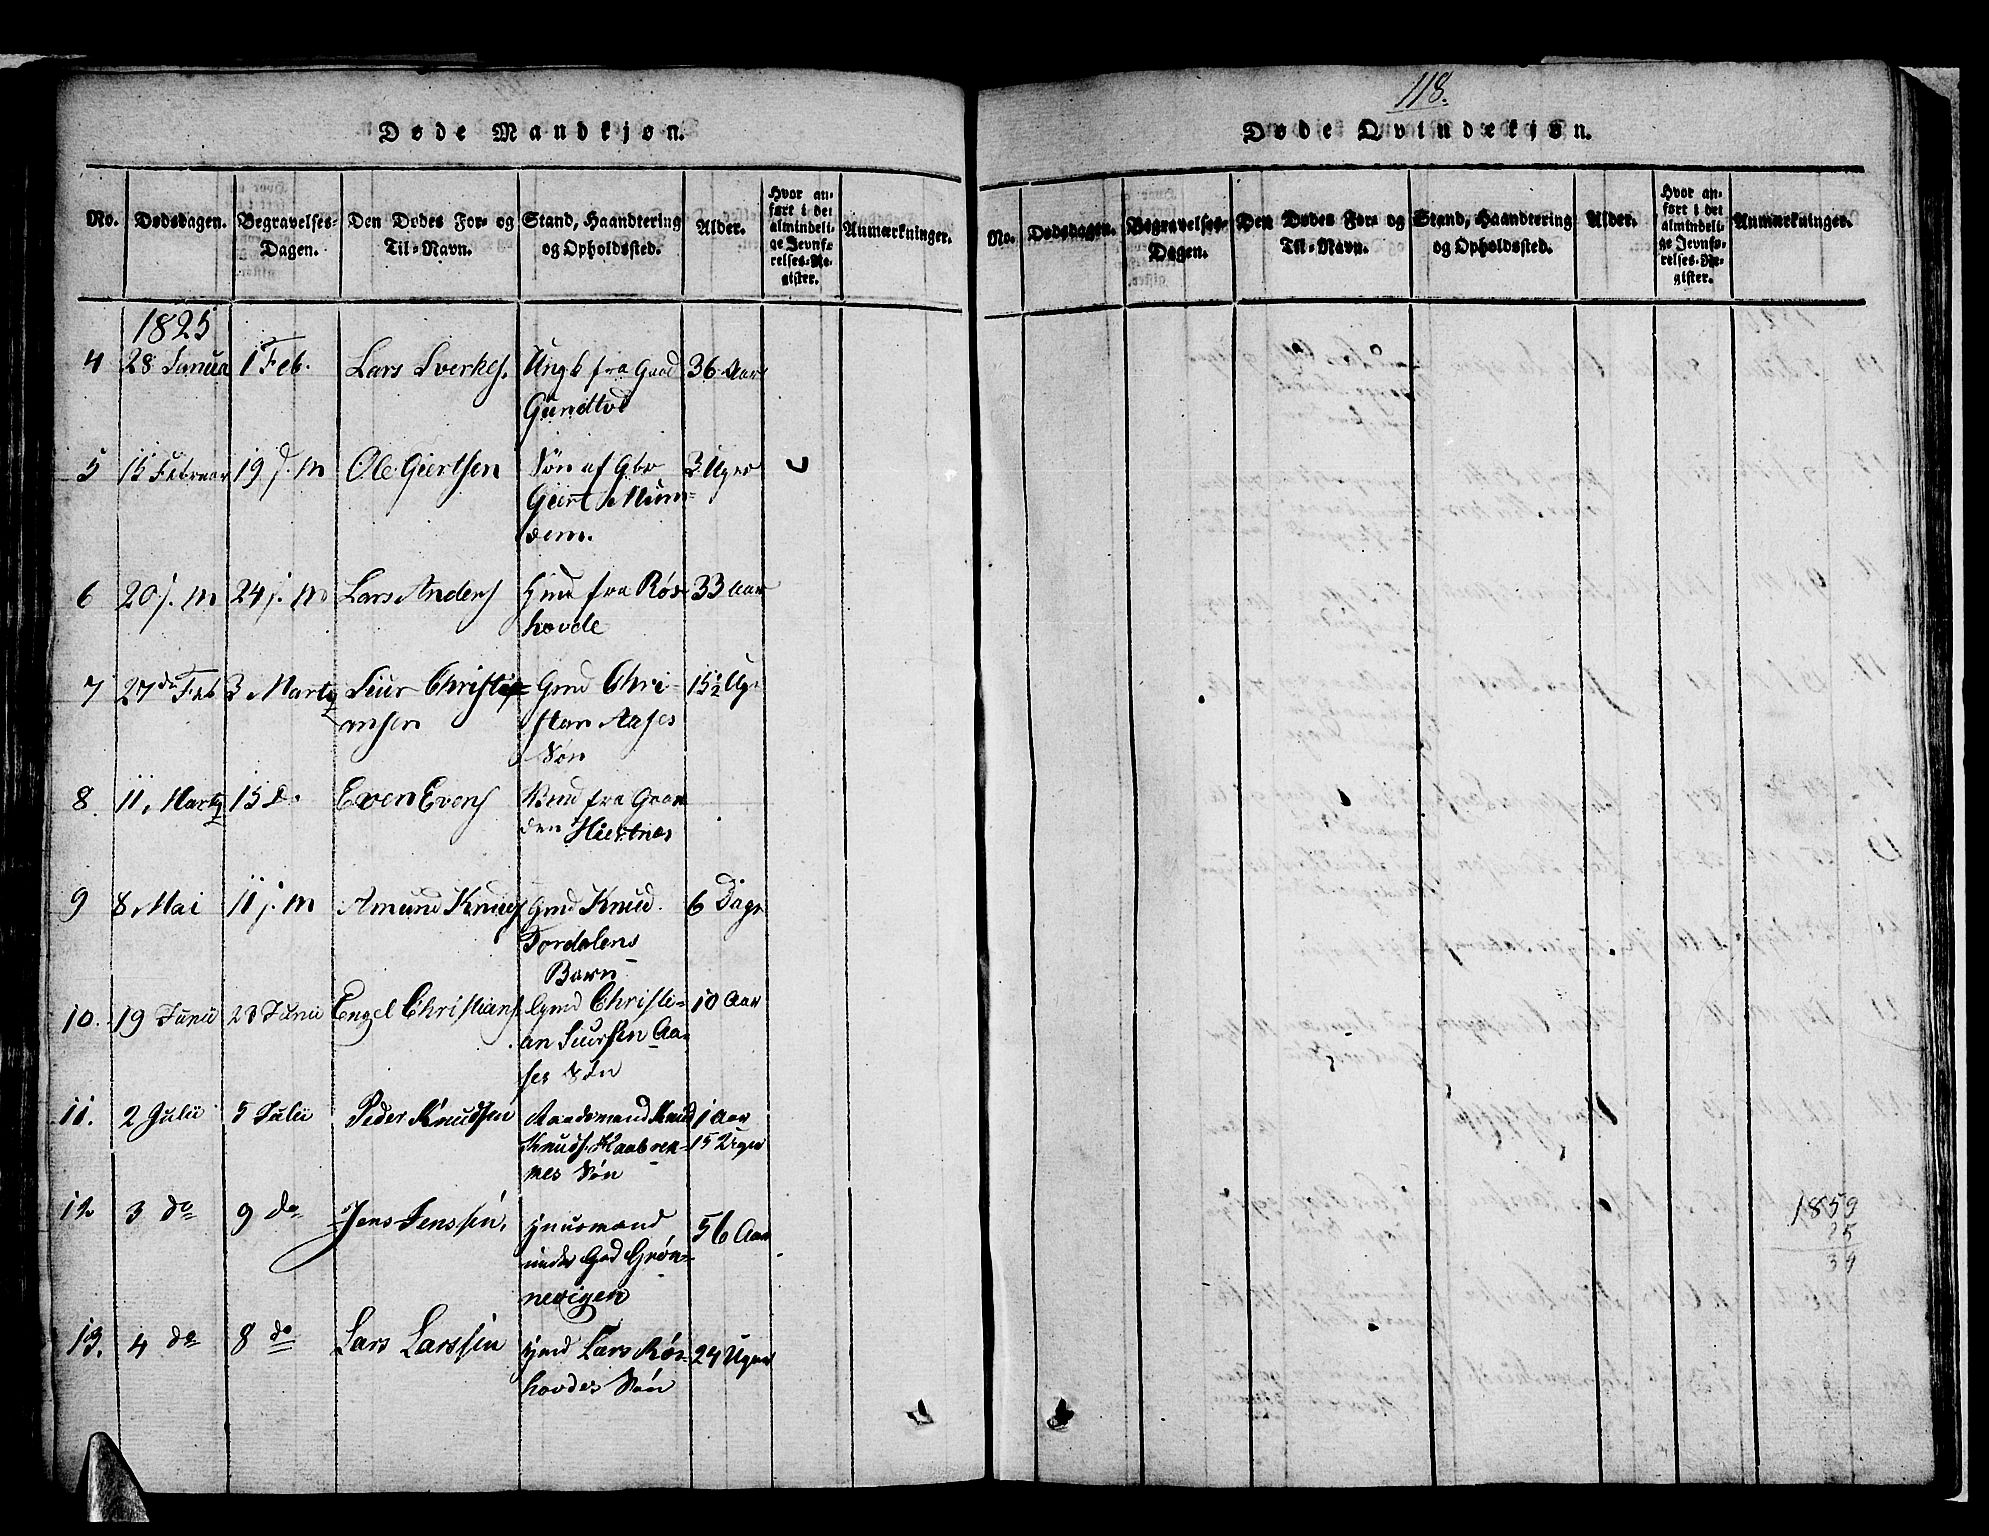 118.
Døde Mandkjøn.
No. Dødsdagen. Begravelses-Dagen. Den Dødes For- og Til-Navn. Stand, Haandtering og Opholdssted. Alder. Hvor anført i det almindelige Jevnførelses-Register. Anmærkninger.
1825
4 28 Janua 1 Feb. Lars Sverkes. Ungk fra Gaad 36 Aar
Gundtvd
5 15 Februar 19 j. M Ole Giertsen Søn af Gbr 3 Uger
Giert Mun-
dem.
6 20 j. M 24 j. M Lars Anders fra Røs- 33 Aar
hovde
7 27de Feb 3 Marty Siur Christi- Gmd Chri- 15½ Uge
ansen stian Aases
Søn
8. 11. Marty 15 d. Even Evens fra Gaar
den Hiertnæs
9 8 Mai 11 j. M Amund Knuds Gmd Knud 6 Dage
Tordalens
Barn
10. 19 Junii 23 Junii Engel Christians. Gmd Christi- 10 Aar
an Siursen Aa-
ses Søn
11. 2 Julii 5 Julii Peder Knudsen Knud 1 Aar
Knuds. Haabrek- 15 Uger
nes Søn
12 3 do 9 do Jens Jenssen, Huusmand 56 Aar
under Grd Grøn-
nevigen
13. 4 do 8 do Lars Larssen Lars Røs- 24 Uger
hovdes Søn
Døde Qvindekjøn.
No. Dødsdagen. Begravelses-Dagen. Den Dødes For- og Til-Navn. Stand, Haandtering og Opholdssted. Alder. Hvor anført i det almindelige Jevnførelses-Register. Anmærkninger.
1859
25
34